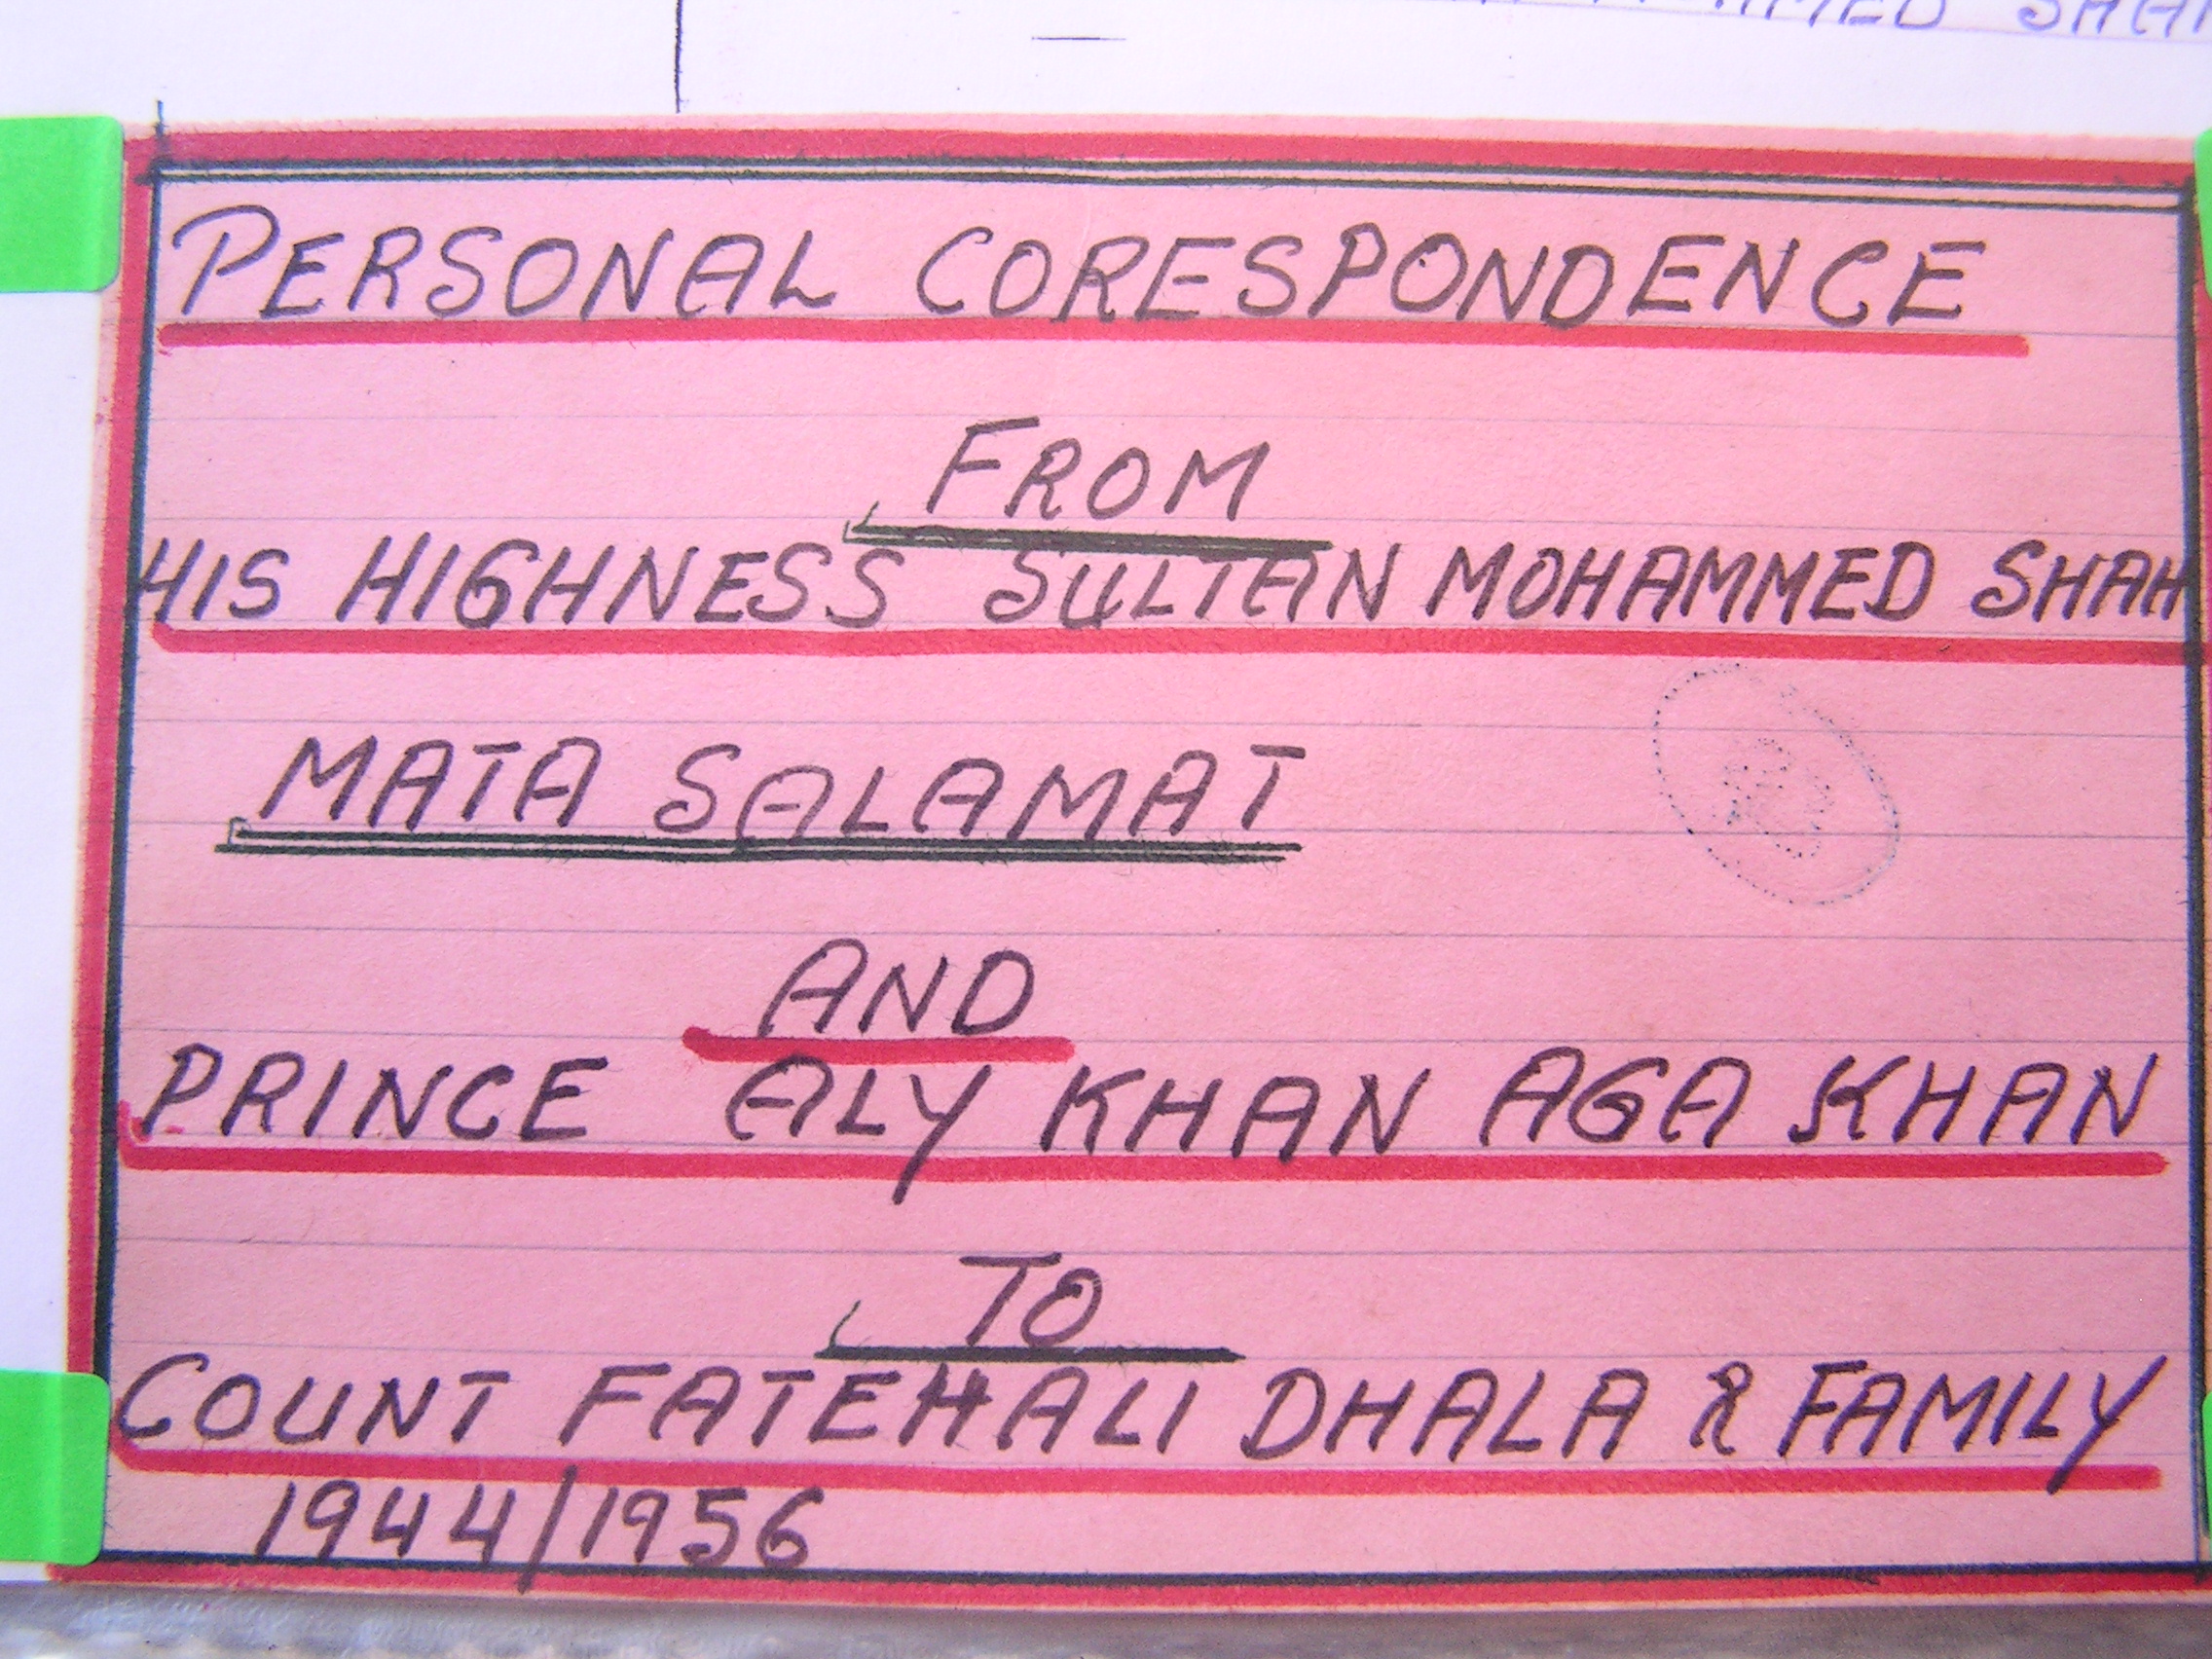 MMED SHAH
PERSONAL CORESPONDENCE
FROM
HIS HIGHNESS SULTAN MOHAMMED SHAH
MATA SALAMAT
AND
PRINCE ALY KHAN AGA KHAN
TO
COUNT FATEHALI DHALA & FAMILY
1944/1956